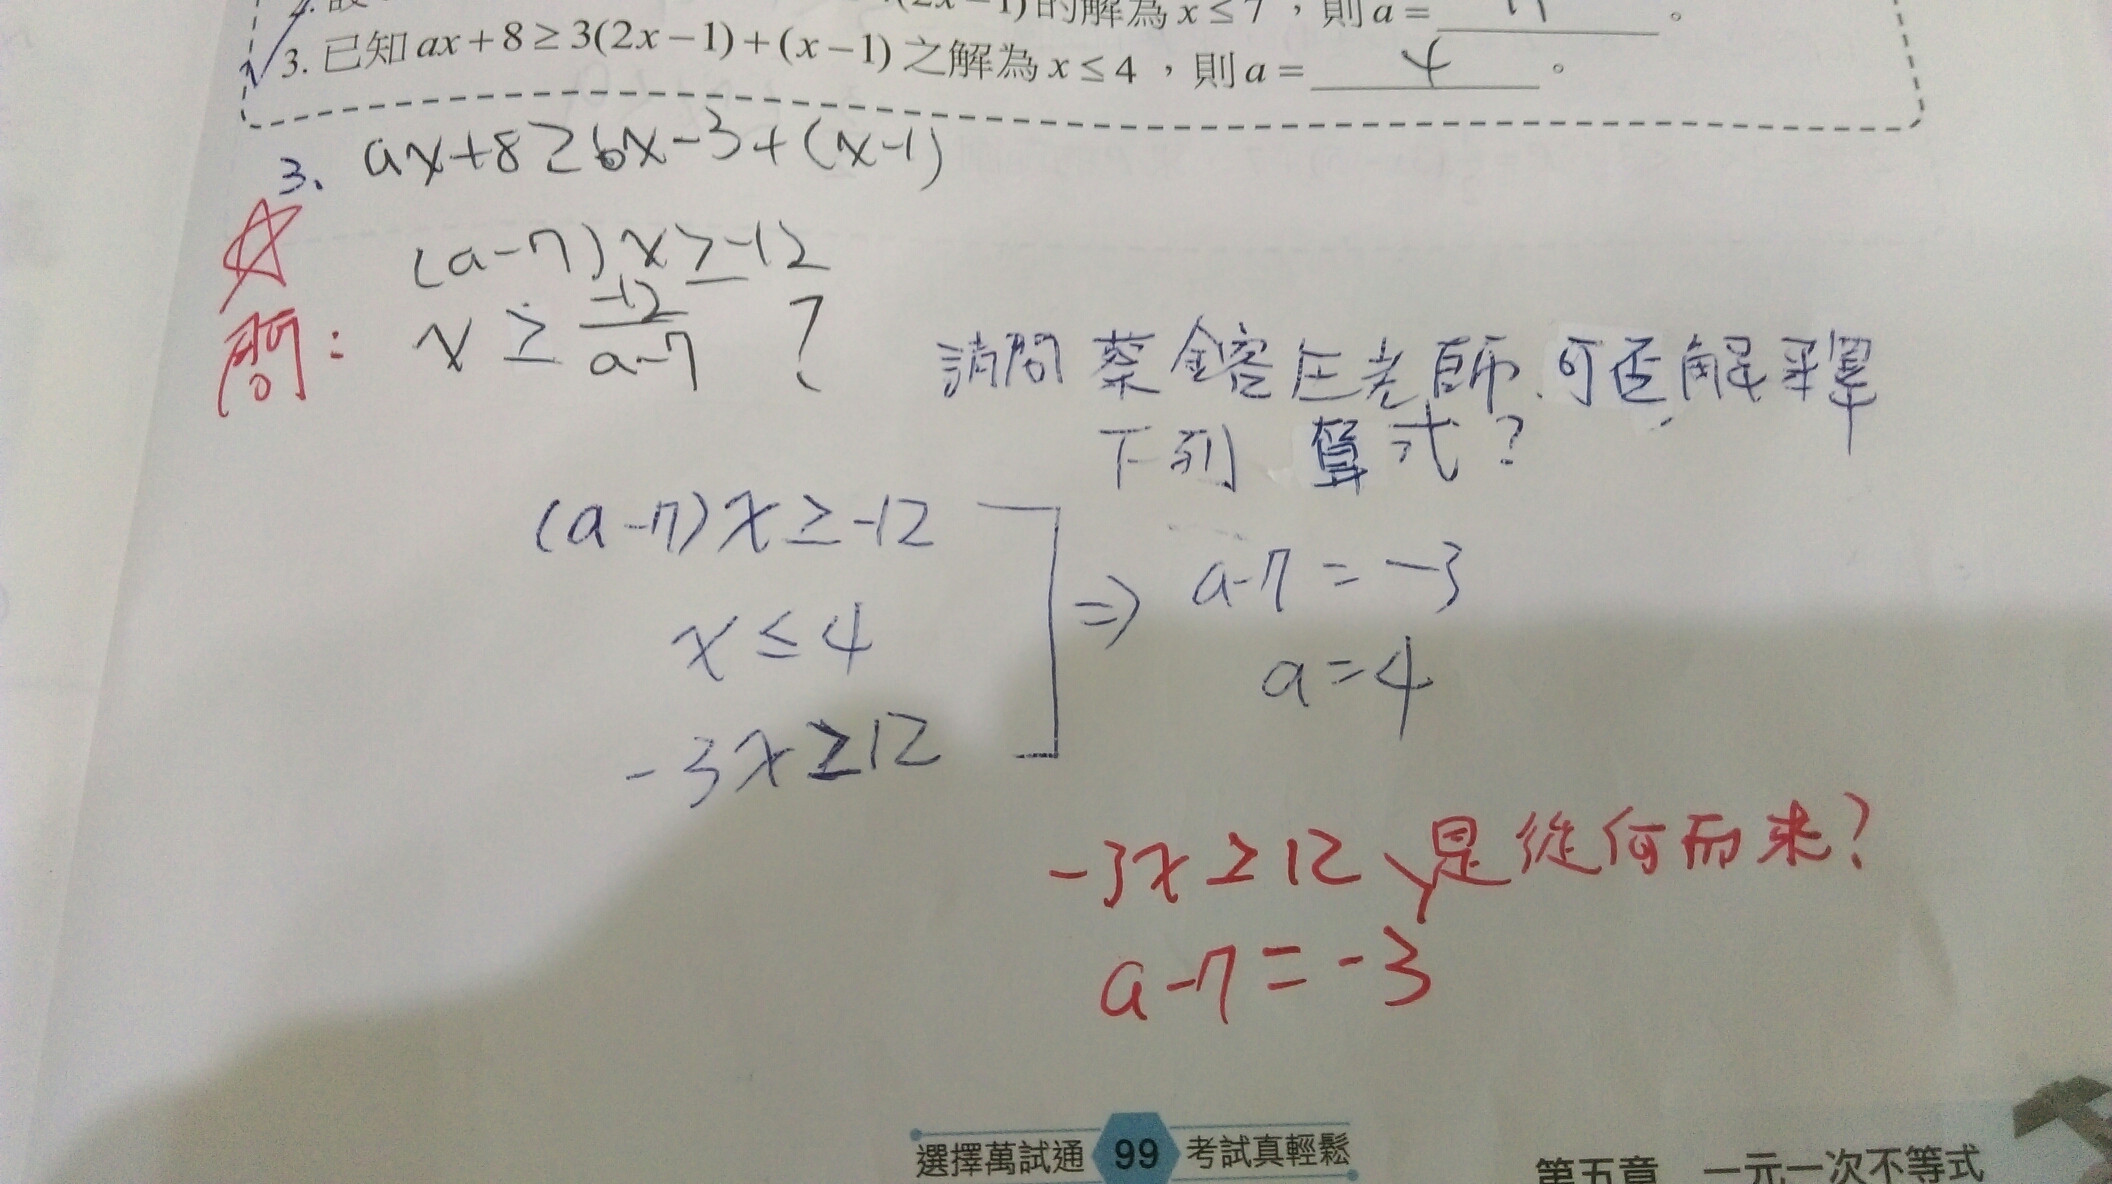 (2x-1)的解為 x ≤ 7，則 a = 。
3. 已知 ax+8≥3(2x-1)+(x-1) 之解為 x ≤ 4，則 a = 4 。
3. ax+8≥6x-3+(x-1)
(a-7)x≥-12
問: x ≥ -12/(a-7) ?
請問蔡鎔任老師,可否解釋
下列 算式?
(a-7)x≥-12
x≤4
-3x≥12
⇒ a-7=-3
a=4
-3x≥12、是從何而来?
a-7=-3
選擇萬試通 99 考試真輕鬆
第五章 一元一次不等式